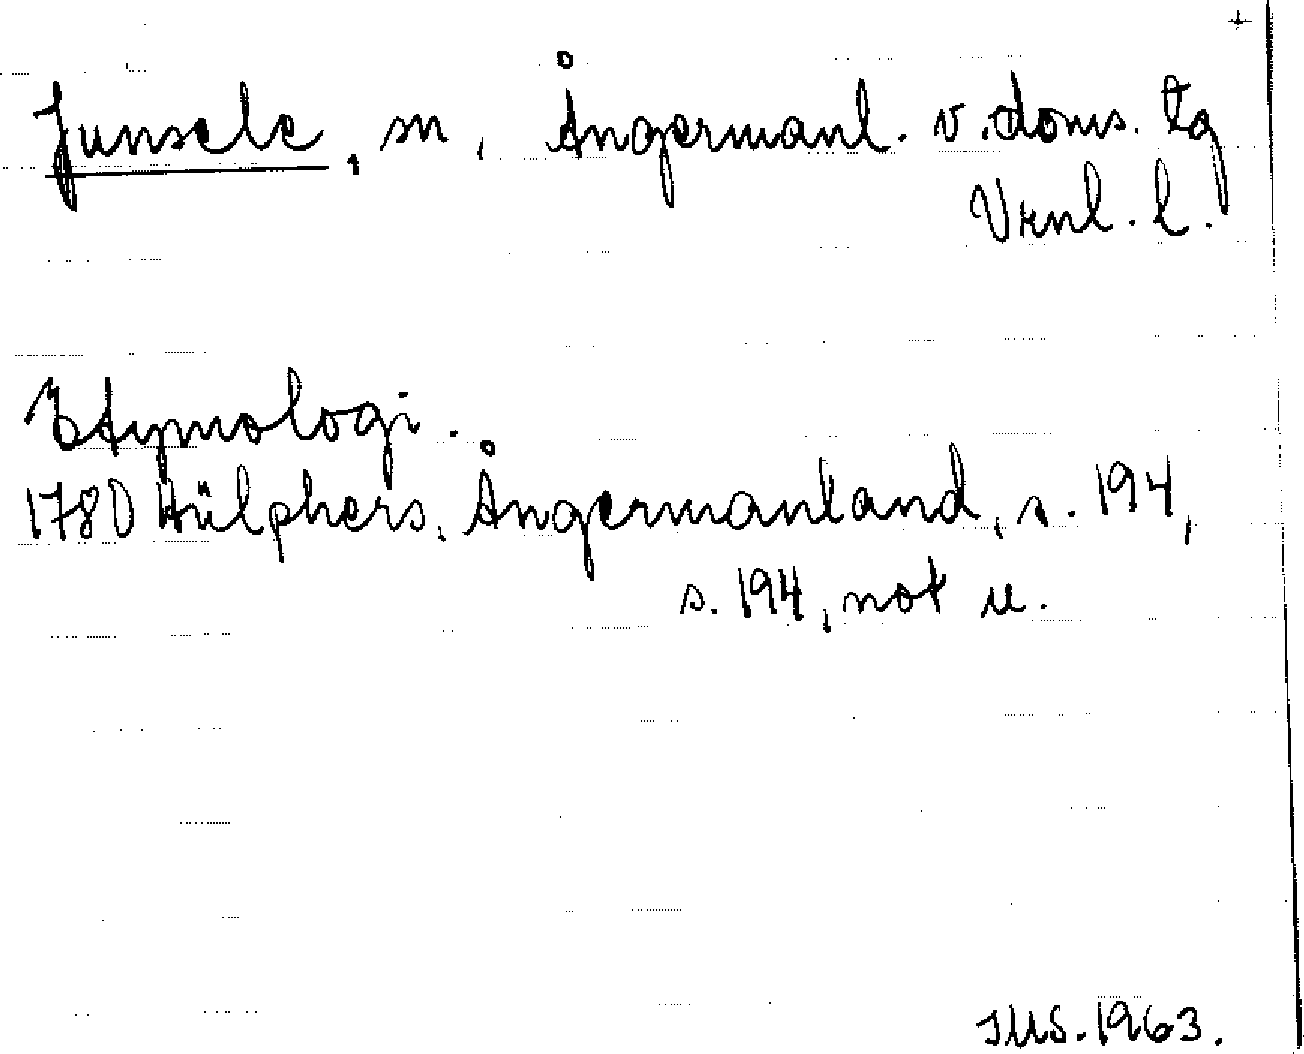 Junsele, sn, Ångermanl. v. doms. tg
Vrnl. l.
Etymologi.
1780 Hülphers, Ångermanland, s. 194,
s. 194, not u.
JMS. 1963.